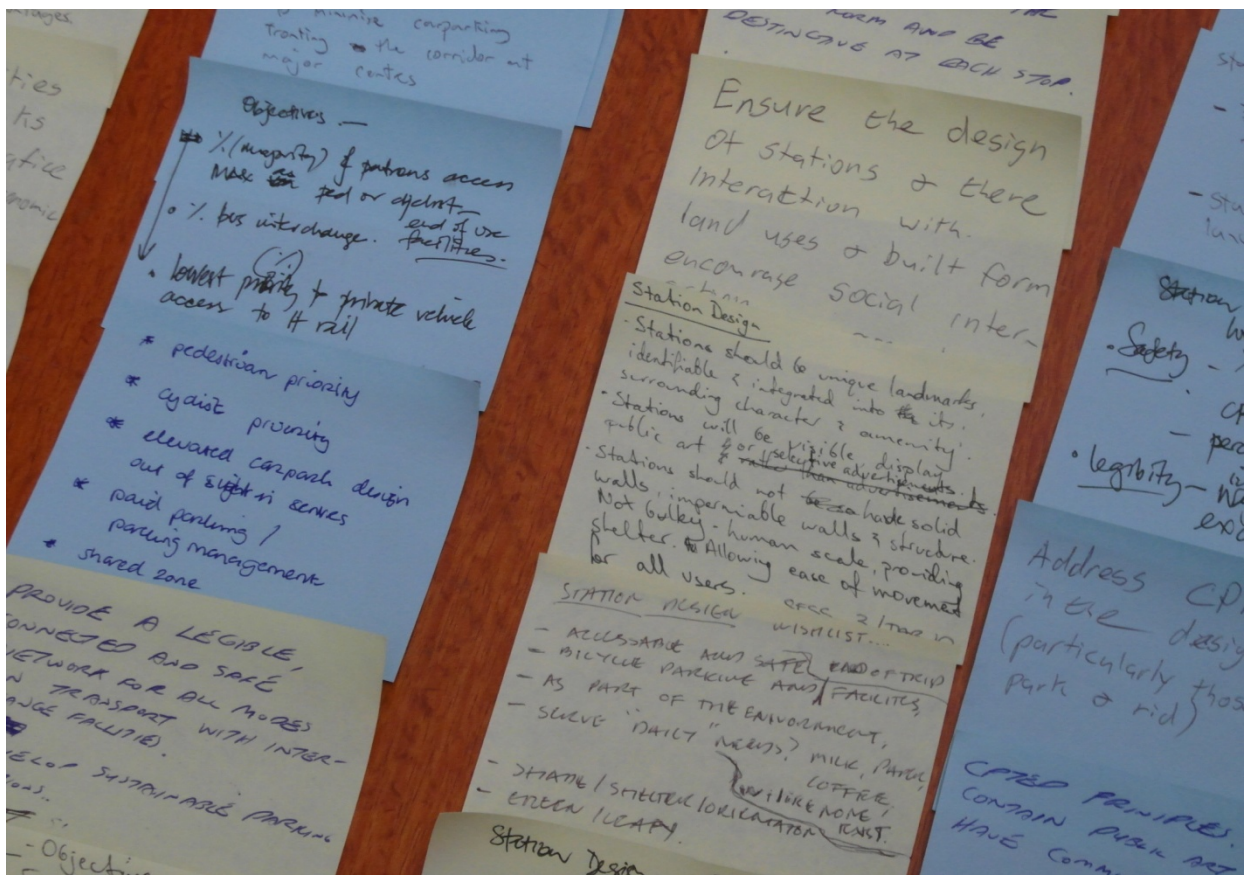 minimise carparking
fronting the corridor at
major centres
Objectives —
% (majority) of patrons access
ped or cyclist —
end of use
• % bus interchange. facilities.
(%)
• lowest priority to private vehicle
access to lt rail
* pedestrian priority
* cyclist priority
* elevated carpark design
out of centres
* paid parking /
parking management
* shared zone
PROVIDE A LEGIBLE,
CONNECTED AND SAFE
NETWORK FOR ALL MODES
TRANSPORT WITH INTER-
FACILITIES.
SUSTAINABLE PARKING
- Objective
FORM AND BE
DESTINCTIVE AT EACH STOP.
Ensure the design
of stations & there
interaction with.
land uses & built form
encourage social inter-
Station Design
• Stations should be unique landmarks,
identifiable & integrated into the its.
surrounding character & ammenity.
• Stations will be visible display
public art & or selective advertisements.
rather than advertisements.
• Stations should not be a hade solid
walls, impermiable walls & structure.
Not bulkey - human scale, providing
shelter. Allowing ease of movement
for all users.
STATION DESIGN WISHLIST...
- ACCESSABLE AND SAFE
- BICYCLE PARKING AND END OF TRIP FACILITES,
- AS PART OF THE ENVIORMENT,
- SERVE "DAILY" NEEDS? MILK, PAPER,
COFFEE.
WHERE NONE,
EXIST.
- SHADE/SHELTER/ORIENTATION
- GREEN/LEAFY.
Station Design
Station
• Safety -
• legibity -
Address
in the
(particularly those
park & rid)
CPTED PRINCIPLES.
CONTAIN PUBLIC ART
HAVE